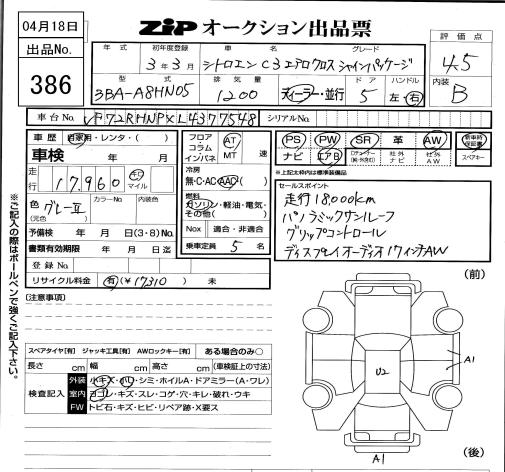 04月18日
ZiP オークション出品票
出品No.
386
年式 初年度登録 車名 グレード
3年3月 シトロエン C3エアロクロス シャインパッケージ
型式 排気量 ドア ハンドル
3BA-A8HN05 1200 ディーラー・並行 5 左・右
評価点
4.5
内装
B
車台No. VF72RHNPXL4377548 シリアルNo.
車歴 自家用・レンタ・( )
車検 年 月
走行 17,960 キロ マイル
色 グレーII (元色) カラーNo. 内装色
予備検 年 月 日(3・8)No.
書類有効期限 年 月 日迄
登録No.
リサイクル料金 有(¥17310) 無
フロア コラム インパネ AT MT 速
冷房
無・C・AC・AAC
燃料
ガソリン・軽油・電気・その他( )
Nox 適合・非適合
乗車定員 5 名
PS PW SR 革 AW 新車時保証書
ナビ エアB 社外ナビ 社外AW スペアキー
※上記太枠内は標準装備品
セールスポイント
走行18,000km
パノラミックサンルーフ
グリップコントロール
ディスプレイオーディオ 17インチAW
※ご記入の際はボールペンで強くご記入下さい。
(注意事項)
スペアタイヤ[有] ジャッキ工具[有] AWロックキー[有] ある場合のみ○
長さ cm 幅 cm 高さ cm (車検証上の寸法)
検査記入
外装 小キズ・小凹・シミ・ホイルA・ドアミラー(A・ワレ)
室内 ヨゴレ・キズ・スレ・コゲ・穴・キレ・破れ・ウキ
FW トビ石・キズ・ヒビ・リペア跡・X要ス
(前)
A1
U2
A1
(後)